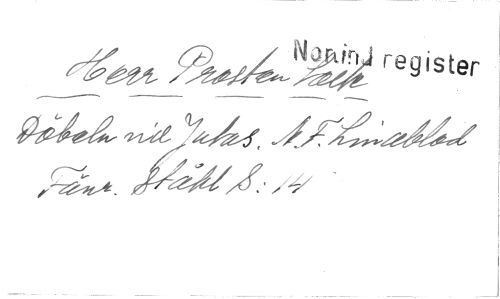 Nomind register
Herr Prosten Lock
Döbeln vid Jutas. A. F. Lindblad
Fänr. Ståhl S: 14